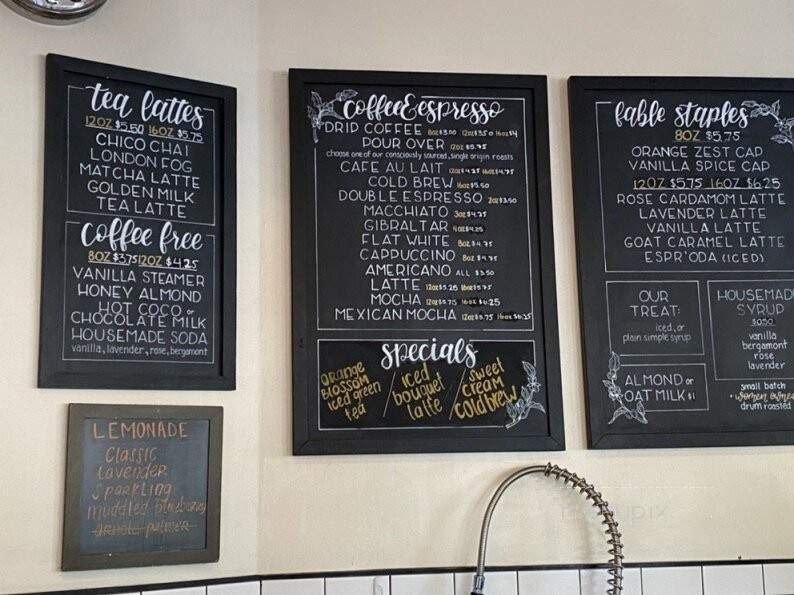 tea lattes
12oz $5.50 16oz $5.75
CHICO CHAI
LONDON FOG
MATCHA LATTE
GOLDEN MILK
TEA LATTE
coffee free
8oz $3.75 12oz $4.25
VANILLA STEAMER
HONEY ALMOND
HOT COCO or
CHOCOLATE MILK
HOUSEMADE SODA
vanilla, lavender, rose, bergamont
LEMONADE
Classic
Lavender
Sparkling
muddled blueberry
arnold palmer
coffee & espresso
DRIP COFFEE 8oz $3.00 12oz $3.50 16oz $4
POUR OVER 12oz $5.75
choose one of our consciously sourced, single origin roasts
CAFE AU LAIT 12oz $4.25 16oz $4.75
COLD BREW 16oz $5.50
DOUBLE ESPRESSO 2oz $3.50
MACCHIATO 3oz $4.25
GIBRALTAR 4oz $4.25
FLAT WHITE 8oz $4.75
CAPPUCCINO 8oz $4.75
AMERICANO ALL $3.50
LATTE 12oz $5.25 16oz $5.75
MOCHA 12oz $5.75 16oz $6.25
MEXICAN MOCHA 12oz $5.75 16oz $6.25
specials
orange
BLOSSOM
iced green
tea
/ iced
bouquet
latte
/ sweet
cream
cold brew
fable staples
8OZ $5.75
ORANGE ZEST CAP
VANILLA SPICE CAP
12OZ $5.75 16OZ $6.25
ROSE CARDAMOM LATTE
LAVENDER LATTE
VANILLA LATTE
GOAT CARAMEL LATTE
ESPR'ODA (ICED)
OUR
TREAT:
iced, or
plain simple syrup
ALMOND or
OAT MILK $1
HOUSEMADE
SYRUP
$0.50
vanilla
bergamont
rose
lavender
small batch
• women owned
drum roasted